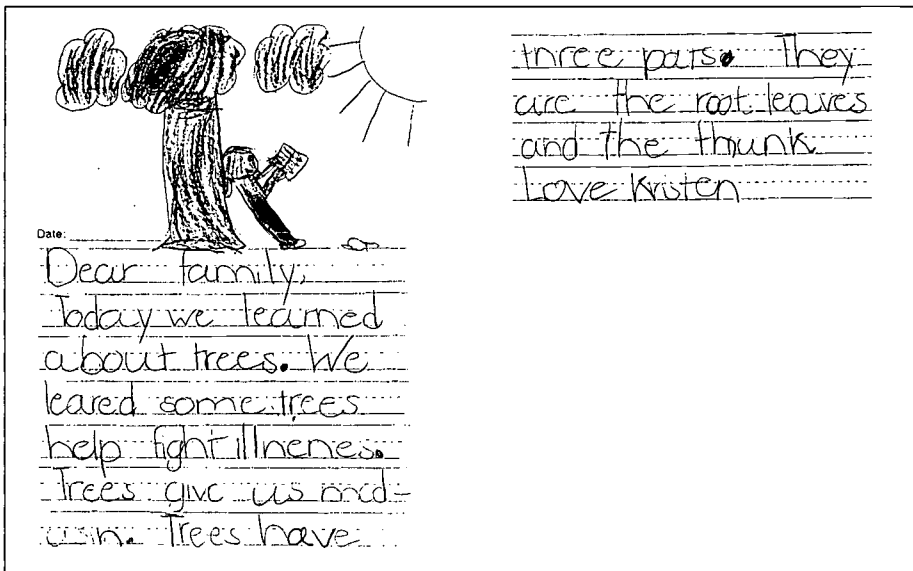 Date:
Dear family,
Today we learned
about trees. We
leared some trees
help fight illnenes.
Trees give us med-
usin. Trees have
three pars. They
are the root leaves
and the thrunk
Love Kristen